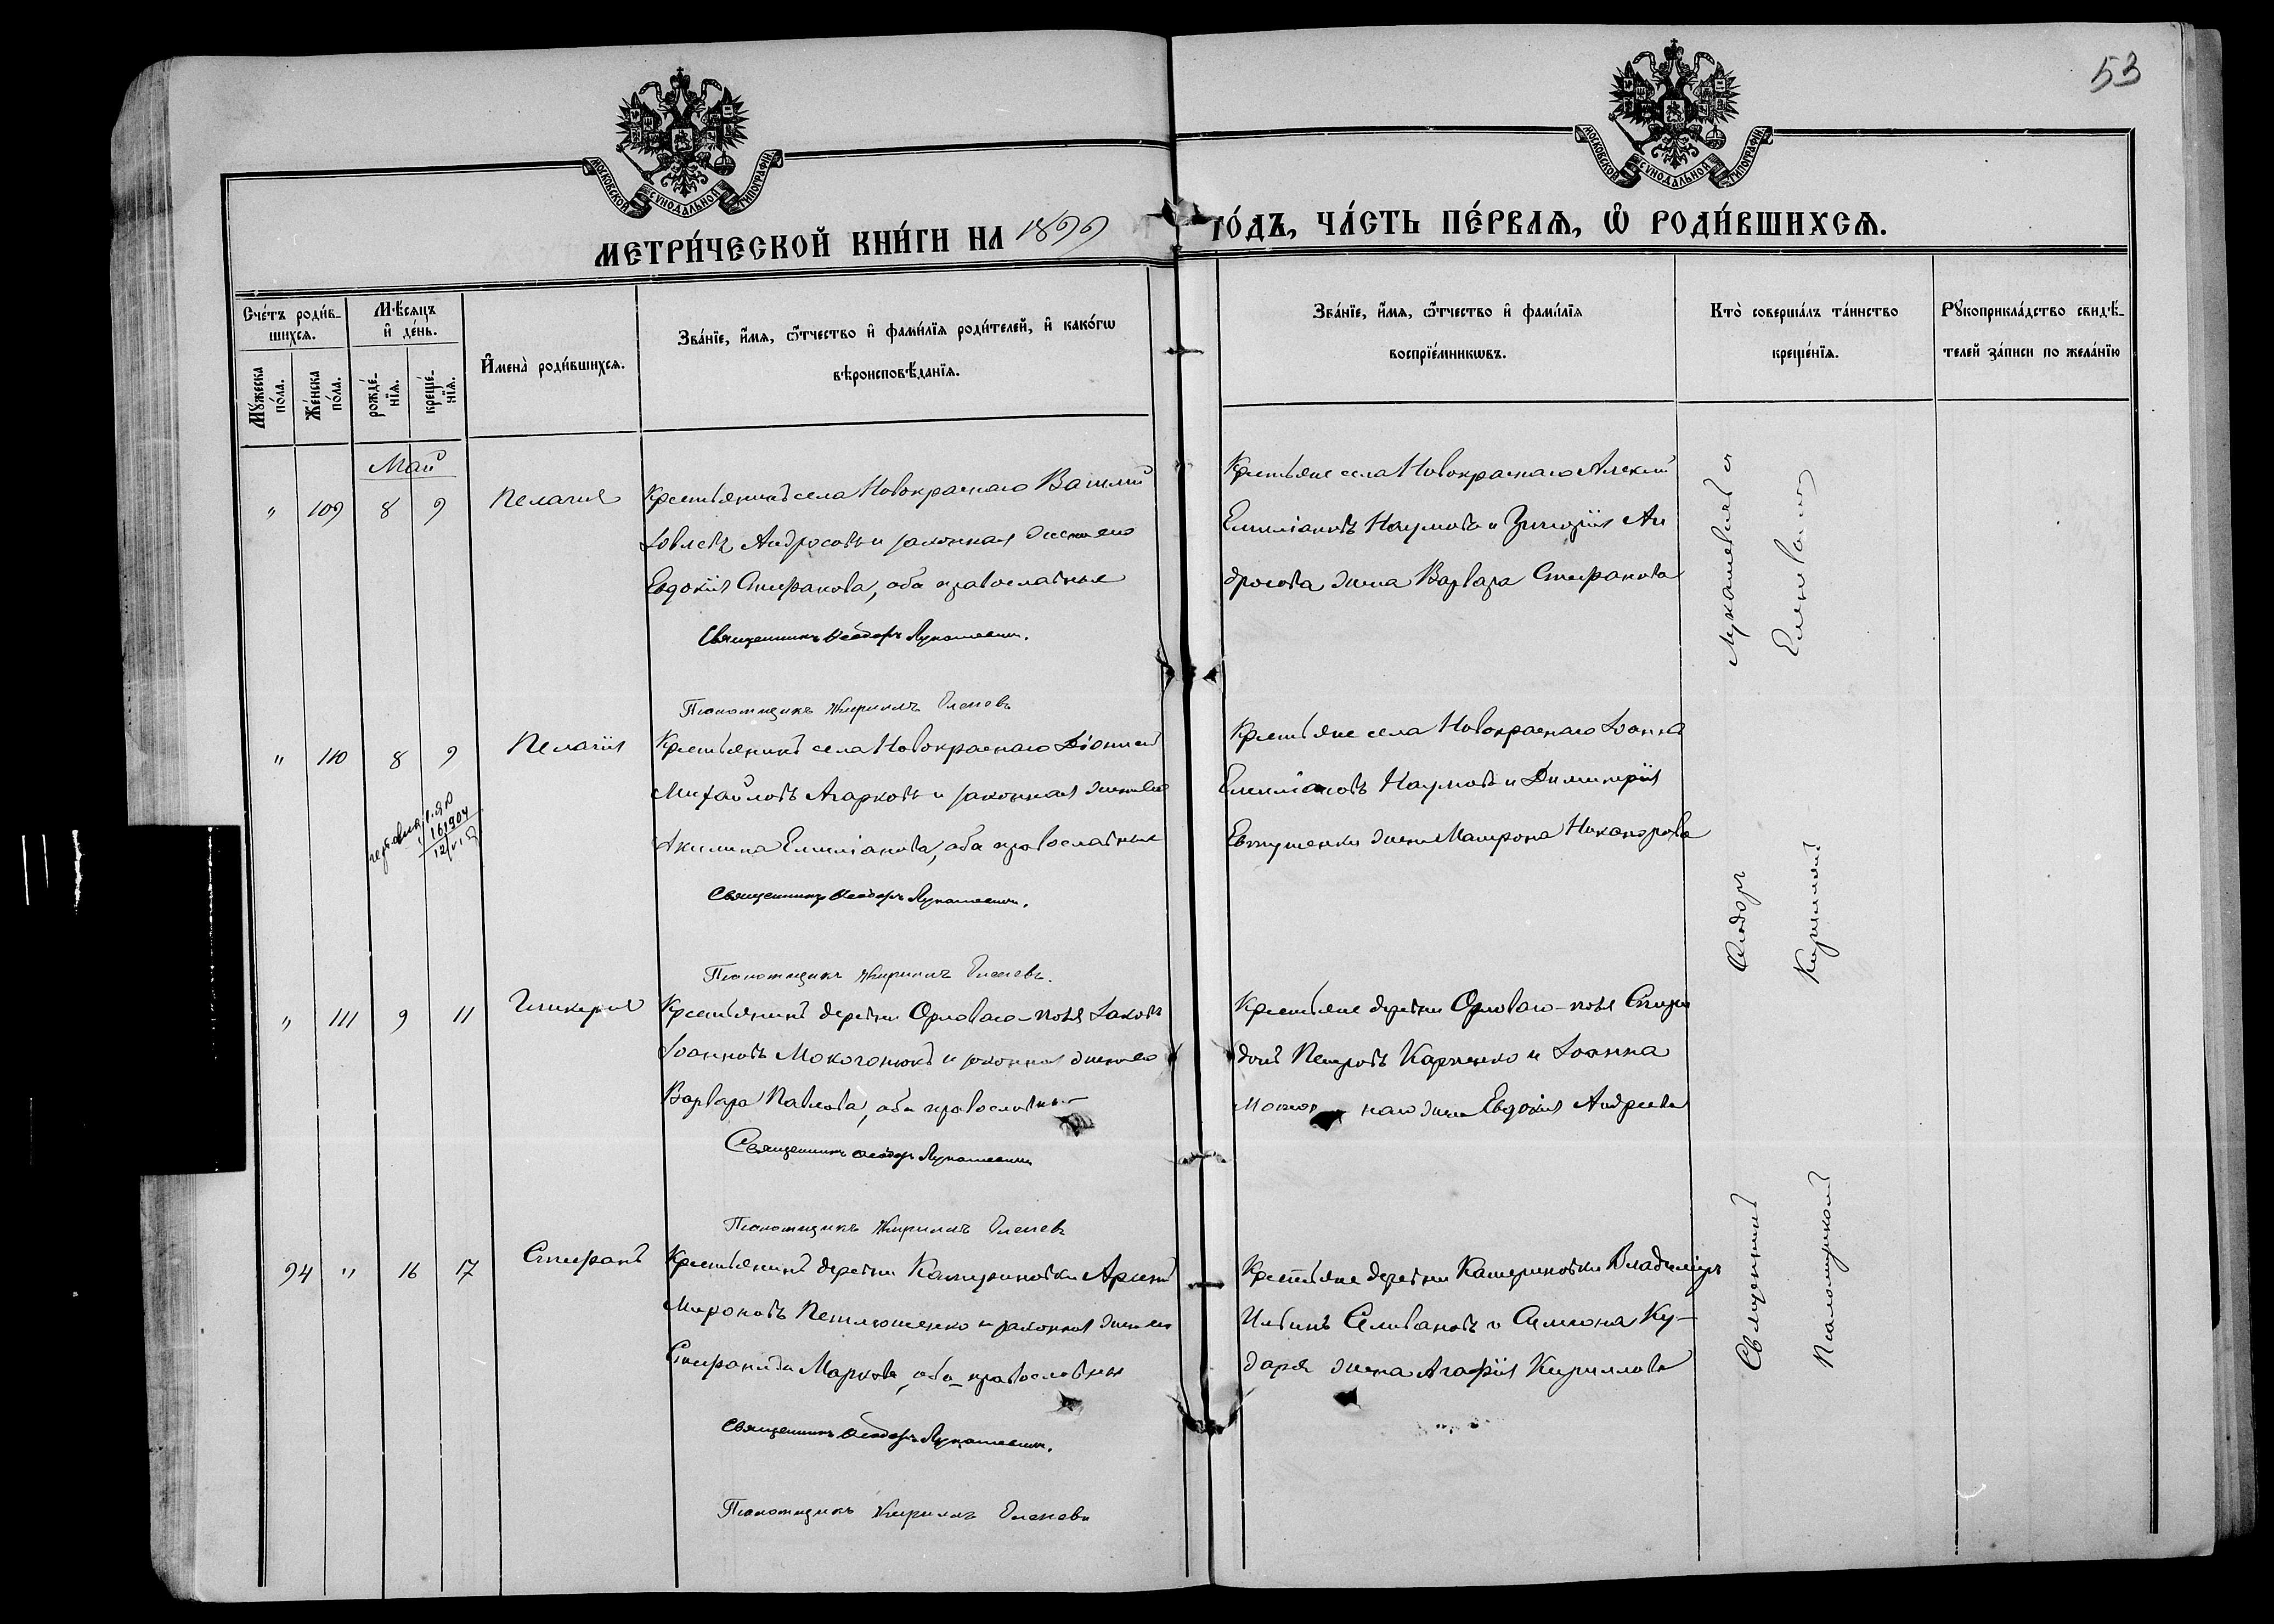 53
МОСКОВСКОЙ СѴНОДАЛЬНОЙ ТИПОГРАФІИ
МОСКОВСКОЙ СѴНОДАЛЬНОЙ ТИПОГРАФІИ
МЕТРИ́ЧЕСКОЙ КНИ́ГИ НА 1899 ГО́ДЪ, ЧА́СТЬ ПЕ́РВАѦ, Ѡ҆ РОДИ́ВШИХСѦ.
Сче́тъ роди́в-
шихсѧ.
Мꙋ́жеска
по́ла.
Же́нска
по́ла.
Мѣ́сѧцъ
и҆ де́нь.
рожде́-
нїѧ.
креще́-
нїѧ.
И҆мена̀ роди́вшихсѧ.
Зва́нїе, и҆́мѧ, ѻ҆́тчество и҆ фами́лїѧ роди́телей, и҆ како́гѡ
вѣроисповѣ́данїѧ.
Зва́нїе, и҆́мѧ, ѻ҆́тчество и҆ фами́лїѧ
воспрїе́мникѡвъ.
Кто̀ соверша́лъ та́инство
креще́нїѧ.
Рꙋкоприкла́дство свидѣ́-
телей за́писи по жела́нїю
Май
" 109 8 9 Пелагия
Крестьянинъ села Новокраснаго Василий
Іовлевъ Андросовъ и законная жена его
Евдокія Стефанова, оба православные
Священникъ Ѳеодоръ Лукашевич.
Псаломщикъ Кириллъ Еленевъ
Крестьяне села Новокраснаго Алексий
Емиліановъ Наумовъ и Григорія Ан
дросова жена Варвара Стефанова
" 110 8 9 Пелагія
Крестьянинъ села Новокраснаго Діонисий
Михайловъ Агарковъ и законная жена его
Акилина Емиліанова, оба православные
Священникъ Ѳеодоръ Лукашевич.
Псаломщикъ Кириллъ Еленевъ.
Крестьяне села Новокраснаго Іоаннъ
Емиліановъ Наумовъ и Димитрія
Евтушенки жена Матрона Никанорова
" 111 9 11 Гликерия
Крестьянинъ деревни Орловаго-поля Іаковъ
Іоанновъ Мокогонюкъ и законная жена его
Варвара Павлова, оба православные
Священникъ Ѳеодоръ Лукашевич
Псаломщикъ Кириллъ Еленевъ
Крестьяне деревни Орловаго-поля Спири
донъ Петровъ Карпенко и Іоанна
жена Евдокія Андреева
94 " 16 17 Стефанъ
Крестьянинъ деревни Катериновки Арсений
Мироновъ Петлюшенко и законная жена его
Стефанида Маркова, оба православные
Священникъ Ѳеодоръ Лукашевич.
Псаломщикъ Кириллъ Еленевъ
Крестьяне деревни Катериновки Владимиръ
Ильинъ Селивановъ и Симеона Ку-
даря жена Агафія Кириллова
Священникъ Ѳеодоръ Лукашевичъ и
Псаломщикъ Кириллъ Еленевъ